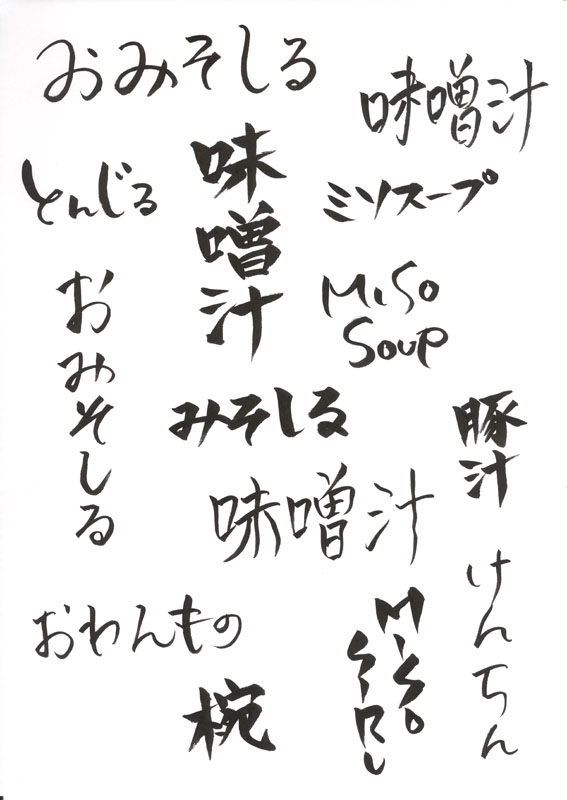 おみそしる
味噌汁
とんじる
味噌汁
ミソスープ
おみそしる
MiSo
Soup
みそしる
豚汁
味噌汁
けんちん
おわんもの
椀
MiSo
SiRu